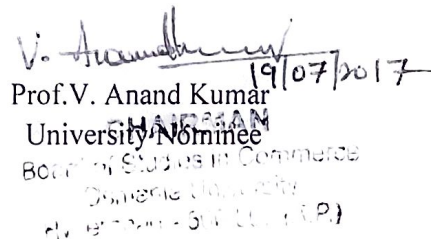 V. Anandkumar
19/07/2017
Prof.V. Anand Kumar
University Nominee
CHAIRMAN
Board of Studies in Commerce
Osmania University